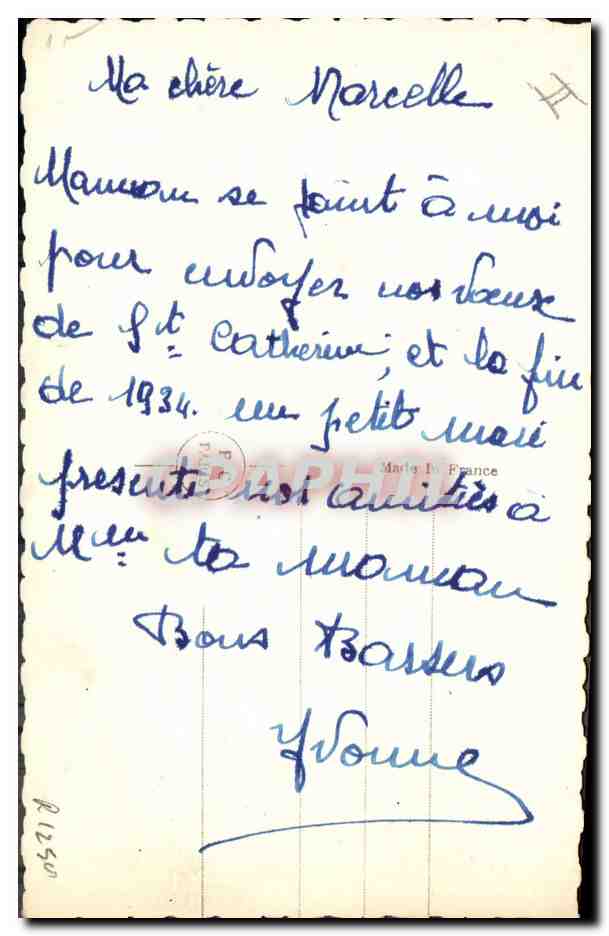 Ma chère Marcelle
II
Maman se joint à moi
pour envoyer nos vœux
de Ste Catherine, et la fin
de 1934. un petit mari
P C
PARIS
Made in France
CPAPHIL
presente nos amitiés à
Mme ta maman
Bons Baisers
Yvonne
R1250